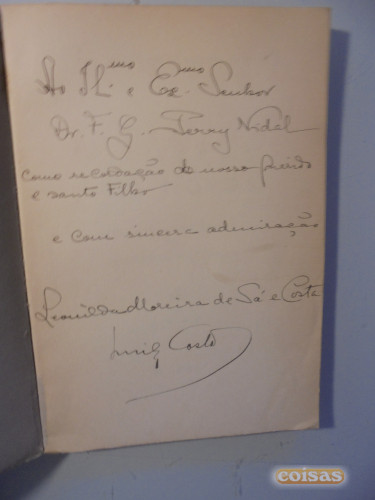 Ao Il.mo e Ex.mo Senhor
Dr. F. G. Perry Vidal
como recordação do nosso querido
e santo Filho
e com sincera admiração
Leonilda Moreira de Sá e Costa
Luiz Costa
coisas